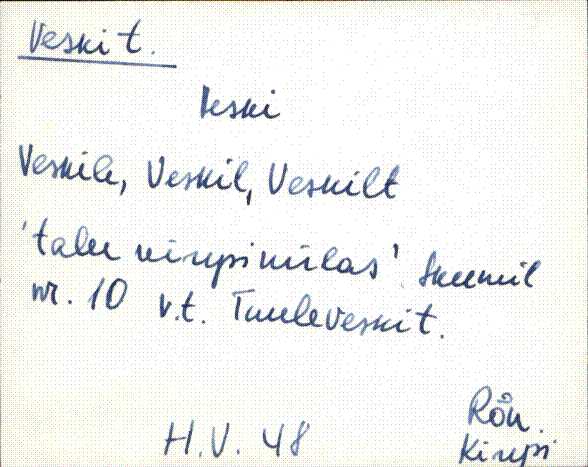 Veski t.
Veski
Veskile, Veskil, Veskilt
'talu Kirepi külas'. Skeemil
nr. 10 v.t. Tuuleveski t.
H.V. 48
Rõn.
Kirepi